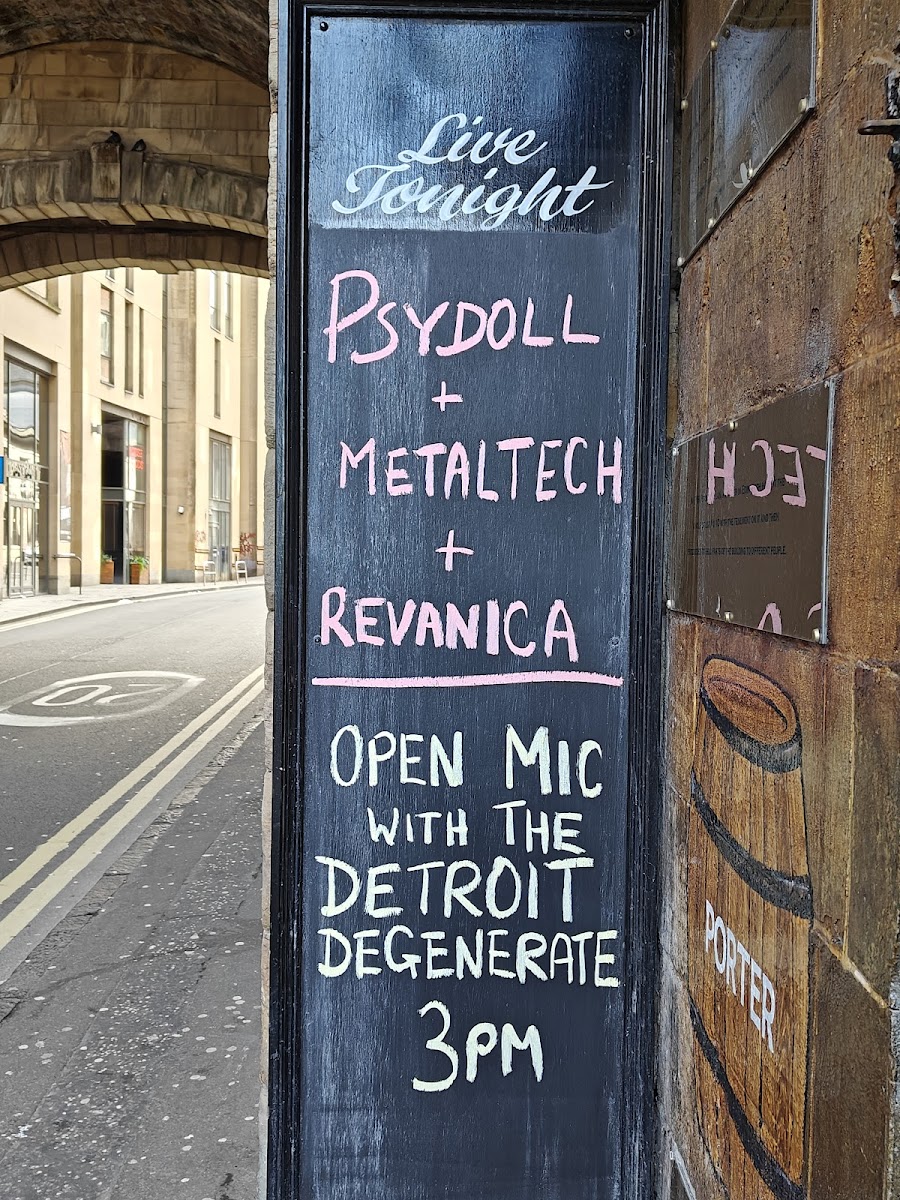 Live
Tonight
PSYDOLL
+
METALTECH
+
REVANICA
OPEN MIC
WITH THE
DETROIT
DEGENERATE
3PM
PORTER
20